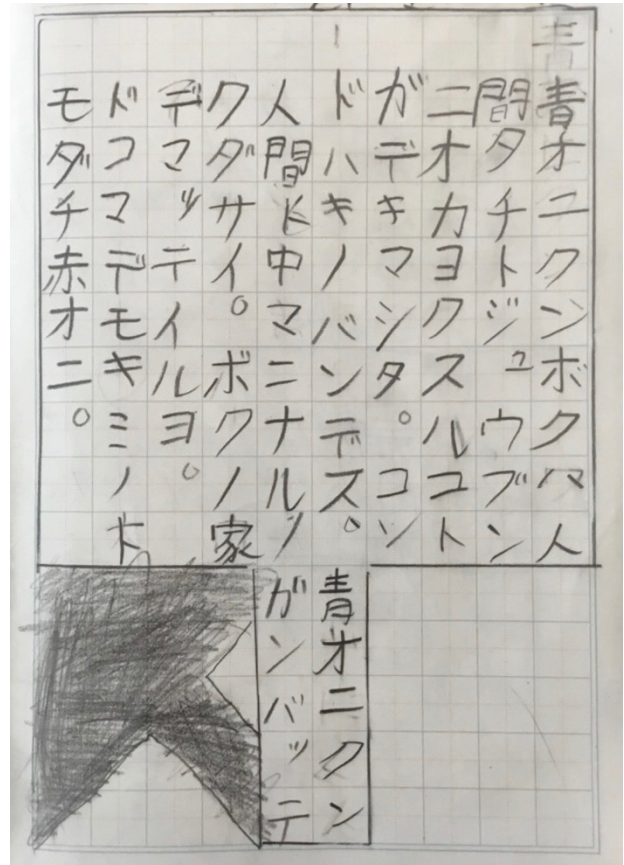 青オニクンボクハ人
間タチトジュウブン
ニオカヨクスルコト
ガデキマシタ。コン
ドハキノバンデス。
人間ト中マニナルノ
クダサイ。ボクノ家
デマッテイルヨ。
ドコマデモキミノト
モダチ赤オニ。
青オニクン
ガンバッテ